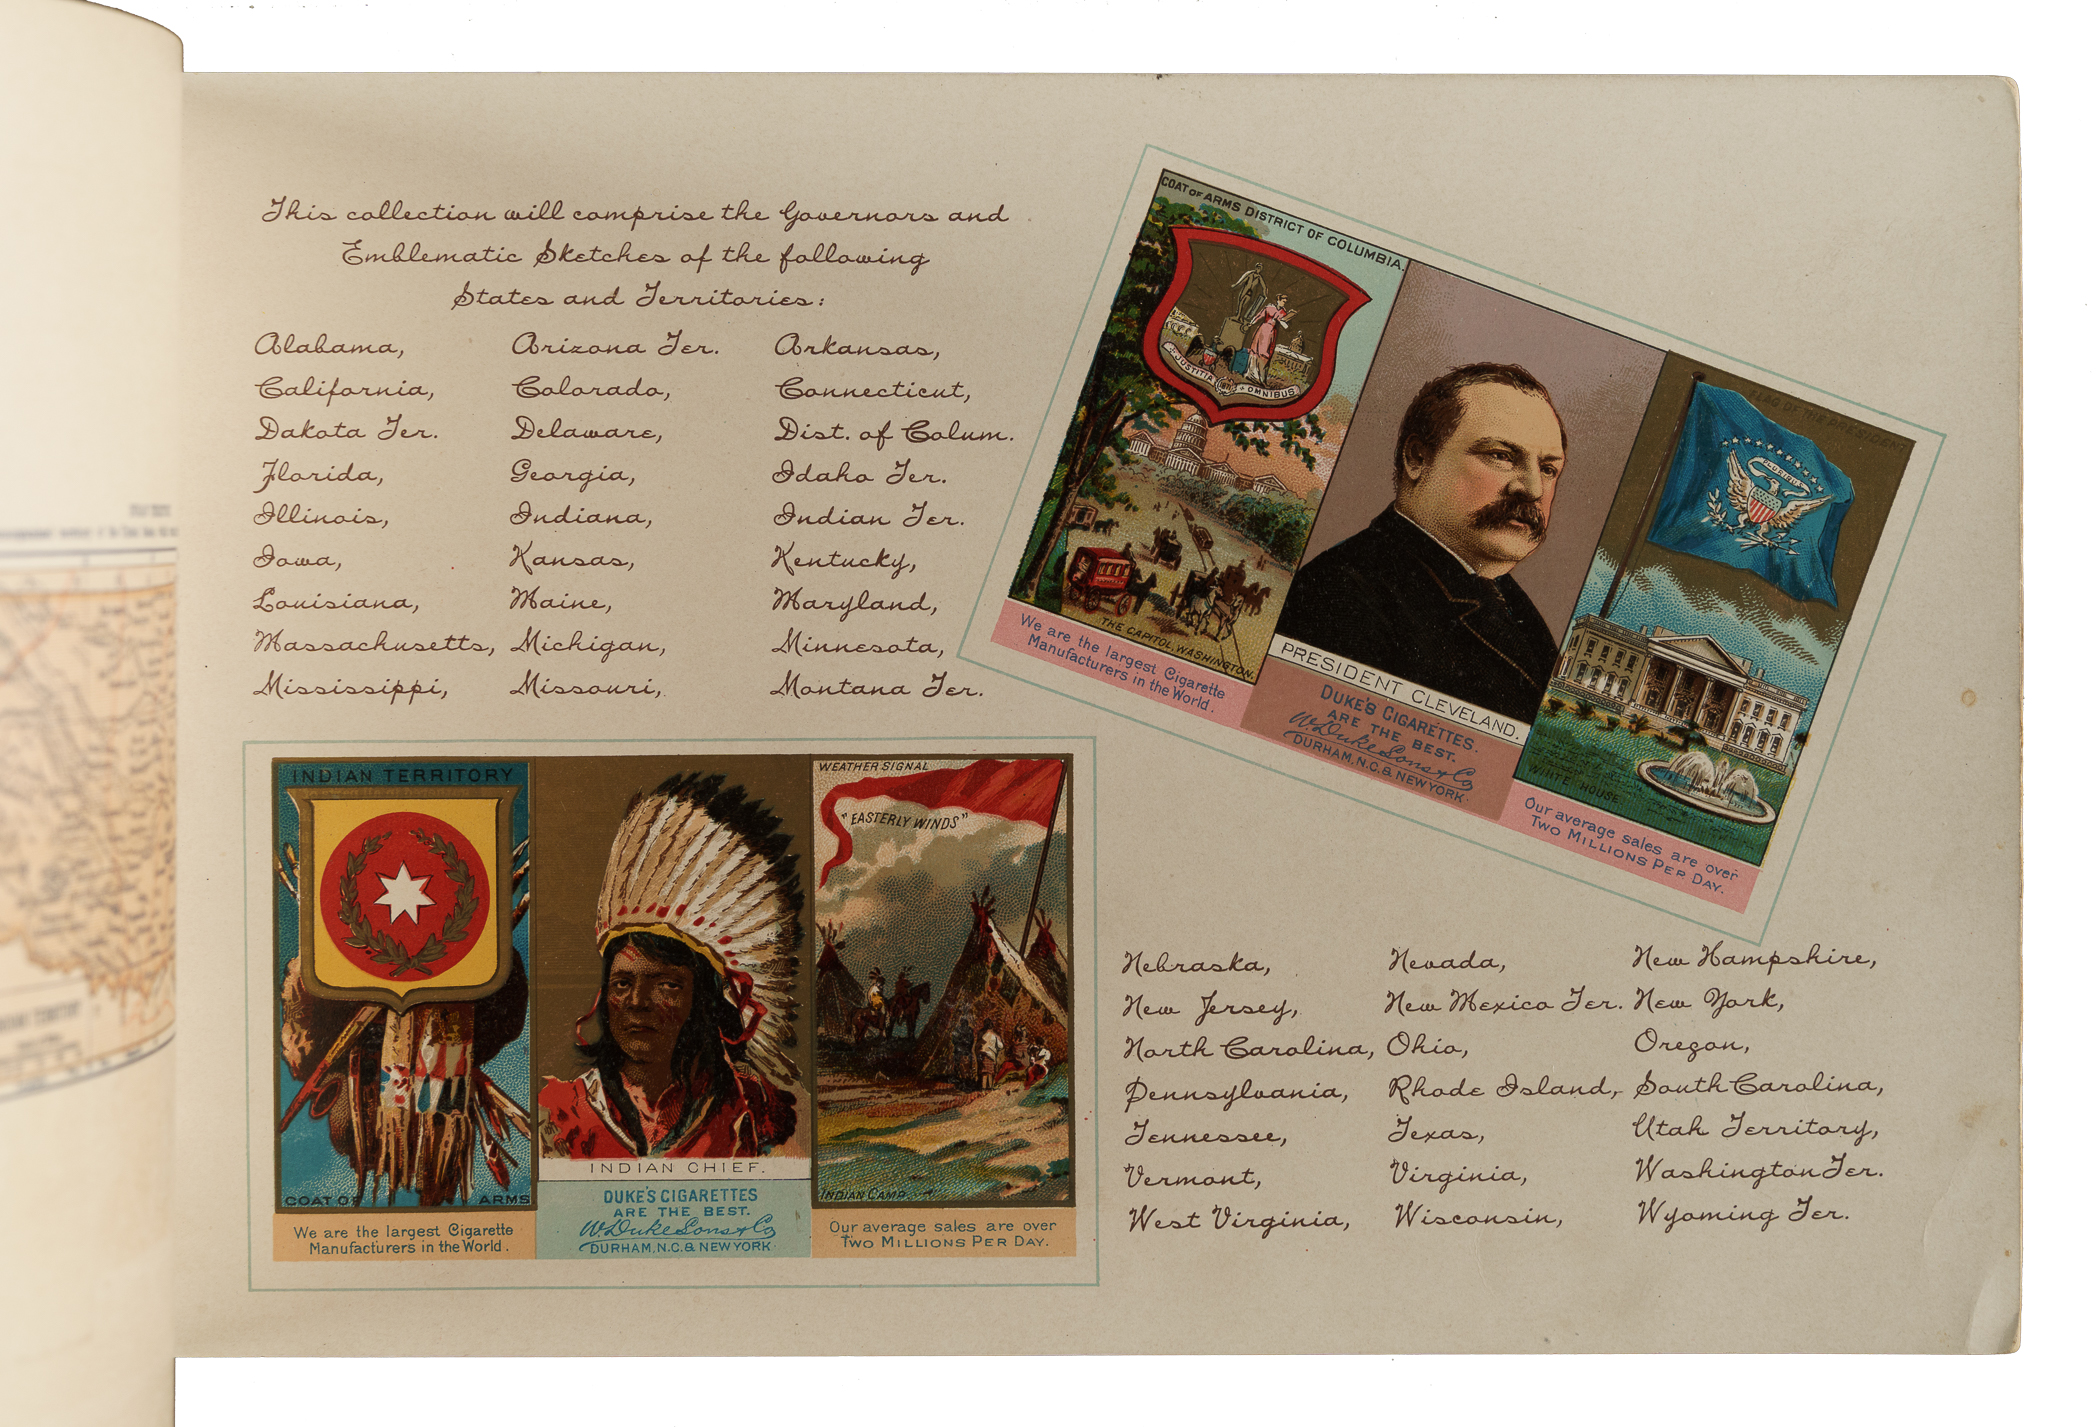 This collection will comprise the Governors and
Emblematic Sketches of the following
States and Territories:
Alabama, Arizona Ter. Arkansas,
California, Colorado, Connecticut,
Dakota Ter. Delaware, Dist. of Colum.
Florida, Georgia, Idaho Ter.
Illinois, Indiana, Indian Ter.
Iowa, Kansas, Kentucky,
Louisiana, Maine, Maryland,
Massachusetts, Michigan, Minnesota,
Mississippi, Missouri, Montana Ter.
COAT OF ARMS DISTRICT OF COLUMBIA.
JUSTITIA OMNIBUS
THE CAPITOL, WASHINGTON.
We are the largest Cigarette
Manufacturers in the World.
PRESIDENT CLEVELAND.
DUKE'S CIGARETTES.
ARE THE BEST.
W. Duke Sons & Co
DURHAM, N.C. & NEW YORK.
FLAG OF THE PRESIDENT
PLURIBUS
WHITE HOUSE
Our average sales are over
TWO MILLIONS PER DAY.
INDIAN TERRITORY
COAT OF ARMS
We are the largest Cigarette
Manufacturers in the World.
INDIAN CHIEF.
DUKE'S CIGARETTES
ARE THE BEST.
W. Duke Sons & Co
DURHAM, N.C. & NEW YORK.
WEATHER SIGNAL
"EASTERLY WINDS"
INDIAN CAMP
Our average sales are over
TWO MILLIONS PER DAY.
Nebraska, Nevada, New Hampshire,
New Jersey, New Mexico Ter. New York,
North Carolina, Ohio, Oregon,
Pennsylvania, Rhode Island, South Carolina,
Tennessee, Texas, Utah Territory,
Vermont, Virginia, Washington Ter.
West Virginia, Wisconsin, Wyoming Ter.